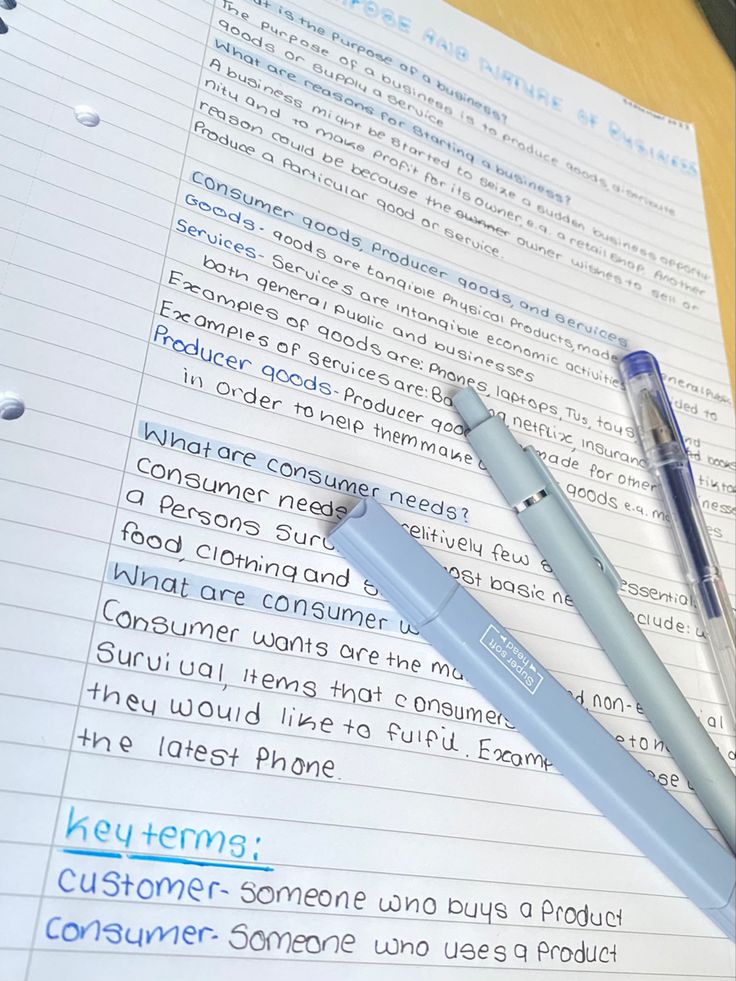 PURPOSE AND NATURE OF BUSINESS
What is the Purpose of a business?
The purpose of a business is to produce goods, distribute
goods or supply a service
What are reasons for starting a business?
A business might be started to seize a sudden business opportu
nity and to make profit for its owner, e.g. a retail shop. Another
reason could be because the owner wishes to sell or
Produce a Particular good or service.
Consumer goods, Producer goods, and services
Goods- goods are tangible Physical Products, made general Public
Services- Services are intangible economic activities to
both general Public and businesses
Examples of goods are: Phones, laptops, Tvs, toys and books
Examples of services are: netflix,
Producer goods- Producer made for other
in order to help them make goods e.g.
What are consumer needs?
Consumer needs few essential
a Persons basic include:
food, clothing and
What are consumer
Consumer wants are the and non-
Survival, items that consumers
they would like to fulfil.
the latest Phone.
Key terms:
Customer- Someone who buys a Product
Consumer- Someone who uses a Product
Super soft
head